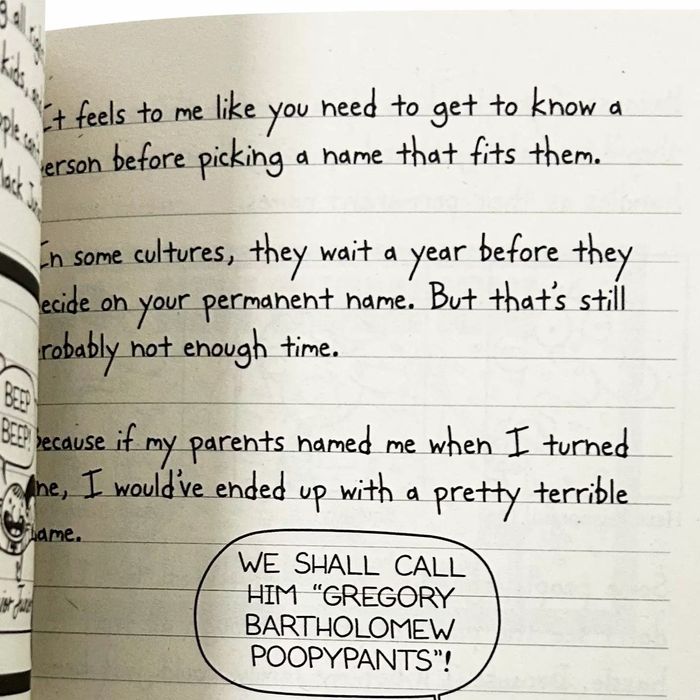 It feels to me like you need to get to know a
erson before picking a name that fits them.
In some cultures, they wait a year before they
ecide on your permanent name. But that's still
robably not enough time.
ecause if my parents named me when I turned
ne, I would've ended up with a pretty terrible
ame.
WE SHALL CALL
HIM "GREGORY
BARTHOLOMEW
POOPYPANTS"!
BEEP
BEEP!